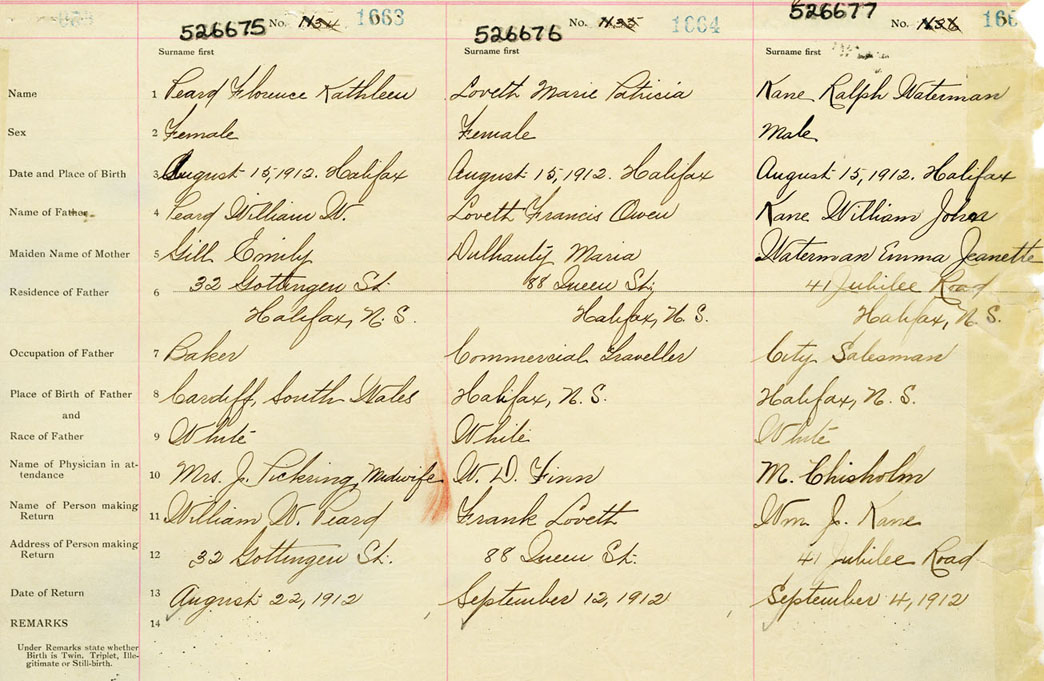 526675 No. 1663 526676 No. 1664 526677 No. 166
Surname first Surname first Surname first
Name 1 Peard Florence Kathleen Lovett Marie Patricia Kane Ralph Waterman
Sex 2 Female Female Male
Date and Place of Birth 3 August 15, 1912. Halifax August 15, 1912. Halifax August 15, 1912. Halifax
Name of Father 4 Peard William W. Lovett Francis Owen Kane William John
Maiden Name of Mother 5 Gill Emily Dulhanty Maria Waterman Emma Jeanette
Residence of Father 6 32 Gottingen St. 88 Queen St. 41 Jubilee Road
Halifax, N.S. Halifax, N.S. Halifax, N.S.
Occupation of Father 7 Baker Commercial Traveller City Salesman
Place of Birth of Father 8 Cardiff, South Wales Halifax, N.S. Halifax, N.S.
and
Race of Father 9 White White White
Name of Physician in at-
tendance 10 Mrs. J. Pickering, Midwife W. D. Finn M. Chisholm
Name of Person making
Return 11 William W. Peard Frank Lovett Wm. J. Kane
Address of Person making
Return 12 32 Gottingen St. 88 Queen St. 41 Jubilee Road
Date of Return 13 August 22, 1912 September 12, 1912 September 4, 1912
REMARKS 14
Under Remarks state whether
Birth is Twin, Triplet, Ille-
gitimate or Still-birth.